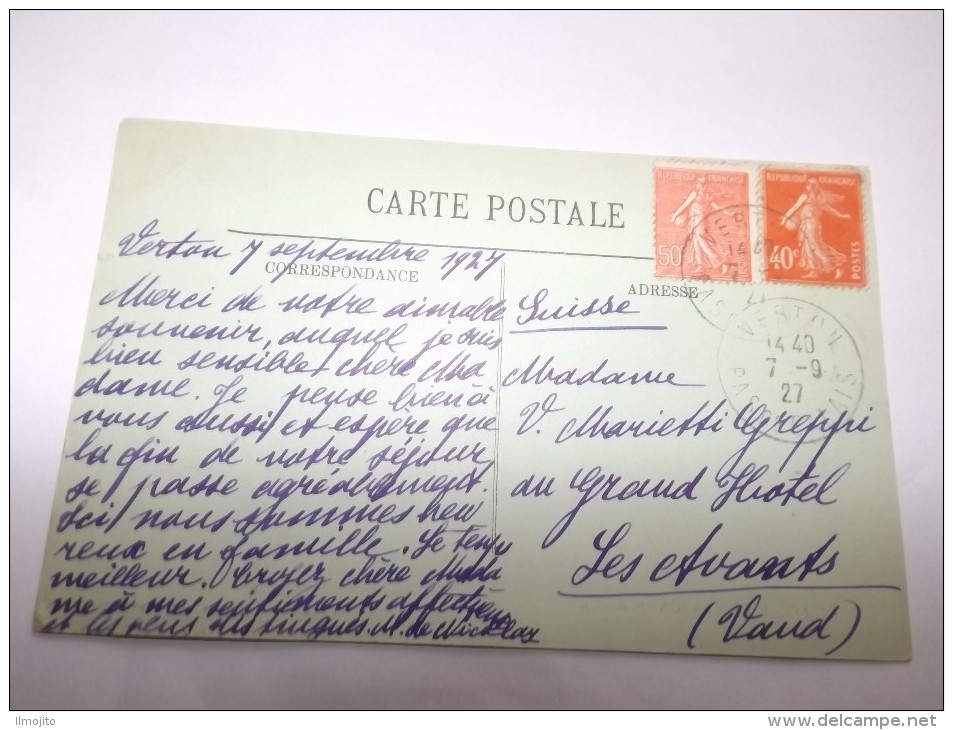 CARTE POSTALE
CORRESPONDANCE
ADRESSE
REPUBLIQUE FRANÇAISE
50c
REPUBLIQUE FRANÇAISE
40c
POSTES
VERTON
14 40
7 -9
27
PAS
Verton 7 septembre 1927
Merci de votre aimable
souvenir, auquel je suis
bien sensible chère Ma
dame. Je pense bien à
vous aussi et espère que
la fin de votre séjour
se passe agréablement.
Ici nous sommes heu
reux en famille. Le temps
meilleur. Croyez chère Mada
me à mes sentiments affectueux
et les plus distingués. M. de
Suisse
Madame
V. Marietti Greppi
au Grand Hotel
Les Avants
(Vaud)
Ilmojito
www.delcampe.net